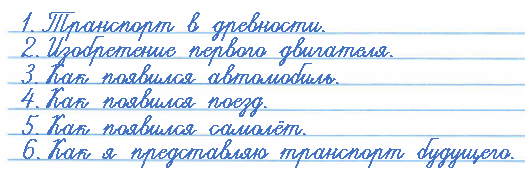 1. Транспорт в древности.
2. Изобретение первого двигателя.
3. Как появился автомобиль.
4. Как появился поезд.
5. Как появился самолёт.
6. Как я представляю транспорт будущего.